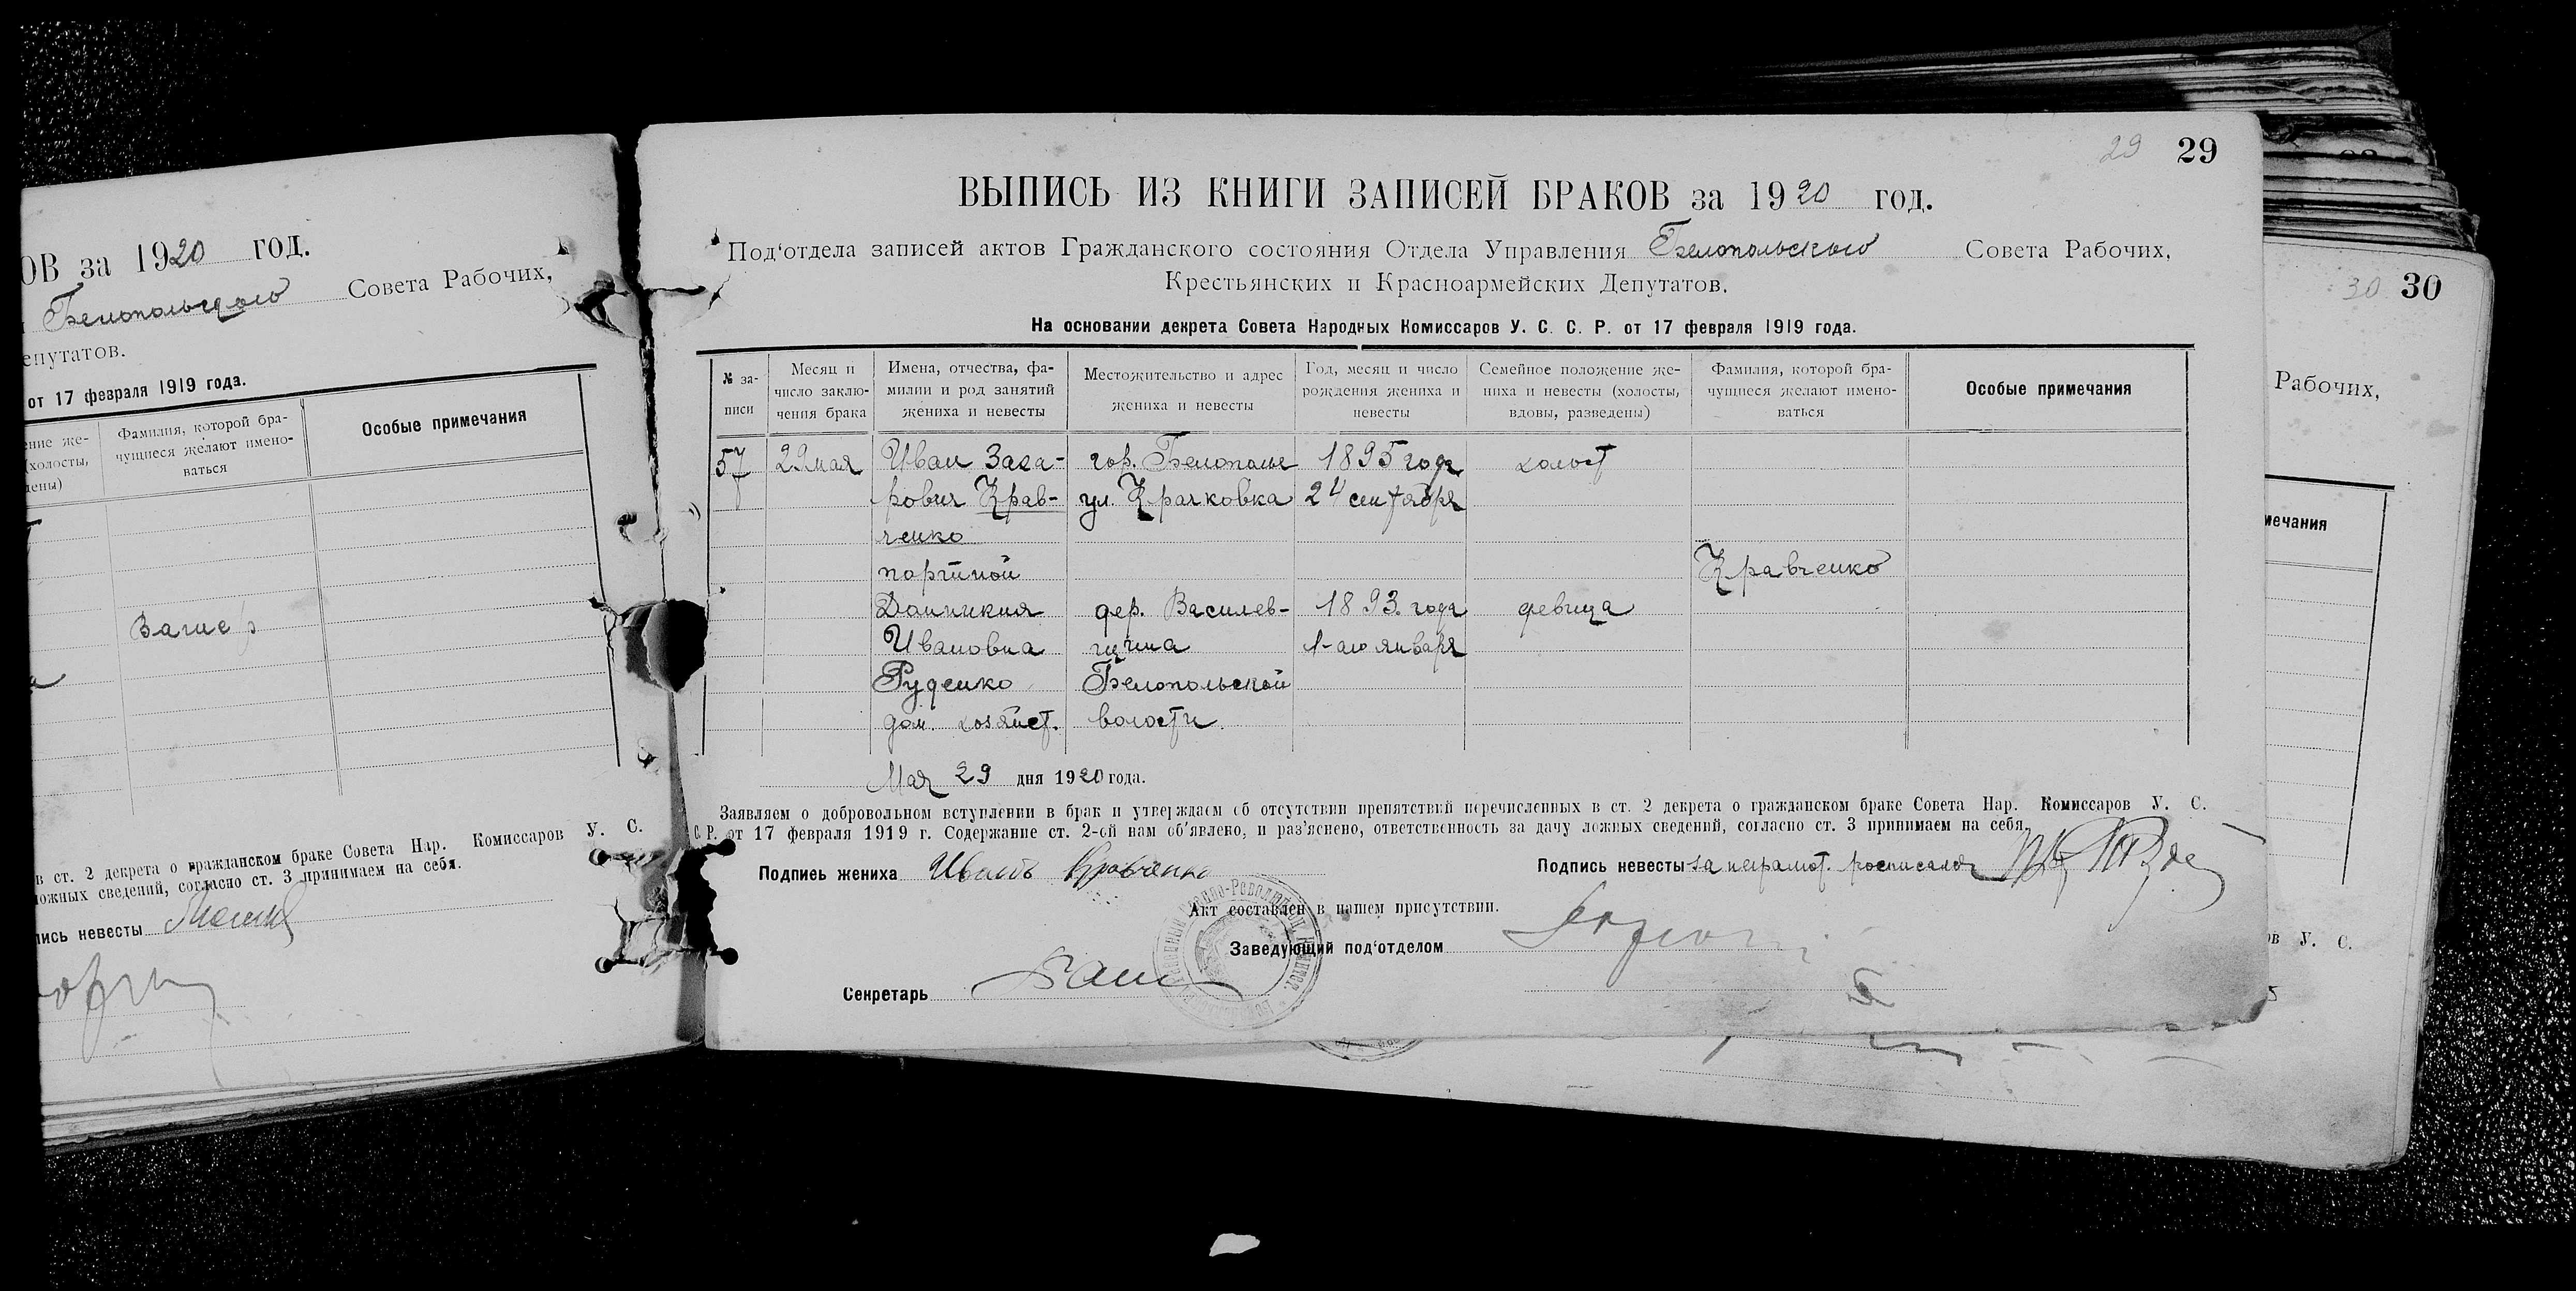 ОВ за 1920 год.
Белопольского Совета Рабочих,
епутатов.
от 17 февраля 1919 года.
ение же-
(холосты,
дены)
Фамилия, которой бра-
чущиеся желают имено-
ваться
Особые примечания
в ст. 2 декрета о гражданском браке Совета Нар. Комиссаров У. С.
ложных сведений, согласно ст. 3 принимаем на себя.
пись невесты
29 29
ВЫПИСЬ ИЗ КНИГИ ЗАПИСЕЙ БРАКОВ за 1920 год.
Под‘отдела записей актов Гражданского состояния Отдела Управления Белопольского Совета Рабочих,
Крестьянских и Красноармейских Депутатов.
На основании декрета Совета Народных Комиссаров У. С. С. Р. от 17 февраля 1919 года.
№ за-
писи
Месяц и
число заклю-
чения брака
Имена, отчества, фа-
милии и род занятий
жениха и невесты
Местожительство и адрес
жениха и невесты
Год, месяц и число
рождения жениха и
невесты
Семейное положение же-
ниха и невесты (холосты,
вдовы, разведены)
Фамилия, которой бра-
чущиеся желают имено-
ваться
Особые примечания
57 29 мая Иван Заха- гор. Белополье 1895 года холост
рович Крав- ул. Крачковка 24 сентября
ченко
портной Кравченко
Домникия дер. Василев- 1893 года девица
Ивановна щина 1-го января
Руденко Белопольской
дом. хозяйст. волости
Мая 29 дня 1920 года.
Заявляем о добровольном вступлении в брак и утверждаем об отсутствии препятствий перечисленных в ст. 2 декрета о гражданском браке Совета Нар. Комиссаров У. С.
С. Р. от 17 февраля 1919 г. Содержание ст. 2-ой нам об‘явлено, и раз‘яснено, ответственность за дачу ложных сведений, согласно ст. 3 принимаем на себя.
Подпись жениха Иванъ Кравченко
Подпись невесты за неграмот. росписался
Акт составлен в нашем присутствии.
Заведующий под‘отделом
Секретарь
30 30
Рабочих,
мечания
ов У. С.